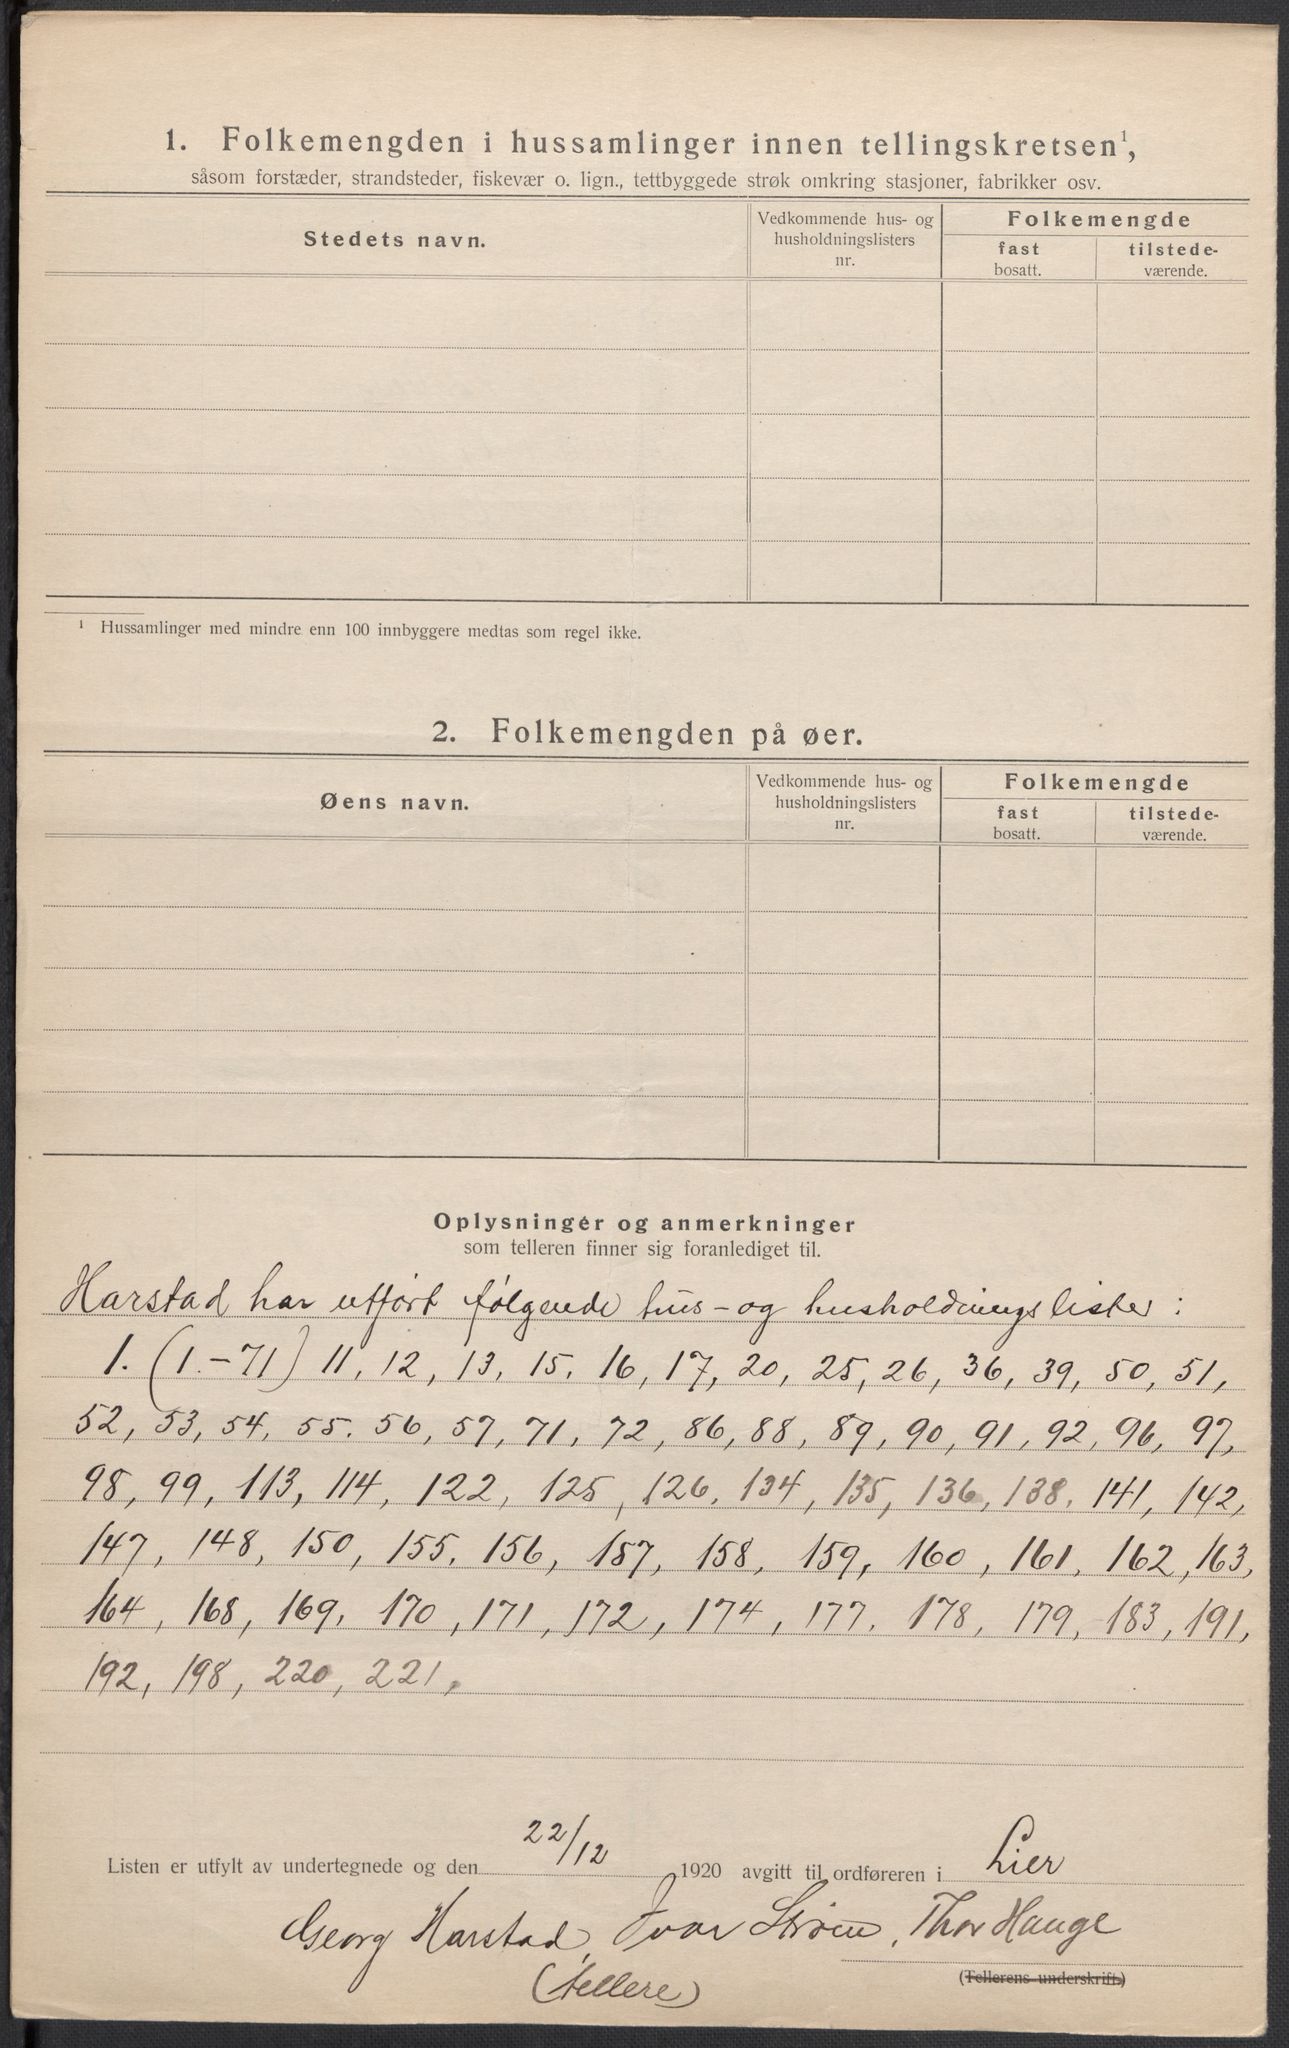 1. Folkemengden i hussamlinger innen tellingskretsen¹,
såsom forstæder, strandsteder, fiskevær o. lign., tettbyggede strøk omkring stasjoner, fabrikker osv.
Stedets navn.
Vedkommende hus- og
husholdningslisters
nr.
Folkemengde
fast
bosatt.
tilstede-
værende.
¹ Hussamlinger med mindre enn 100 innbyggere medtas som regel ikke.
2. Folkemengden på øer.
Øens navn.
Vedkommende hus- og
husholdningslisters
nr.
Folkemengde
fast
bosatt.
tilstede-
værende.
Oplysninger og anmerkninger
som telleren finner sig foranlediget til.
Harstad har utført følgende hus- og husholdningslister:
1. (1.-71) 11, 12, 13, 15, 16, 17, 20, 25, 26, 36, 39, 50, 51,
52, 53, 54, 55. 56, 57, 71, 72, 86, 88, 89, 90, 91, 92, 96, 97,
98, 99, 113, 114, 122, 125, 126, 134, 135, 136, 138, 141, 142,
147, 148, 150, 155, 156, 157, 158, 159, 160, 161, 162, 163,
164, 168, 169, 170, 171, 172, 174, 177, 178, 179, 183, 191,
192, 198, 220, 221,
Listen er utfylt av undertegnede og den 22/12 1920 avgitt til ordføreren i Lier
Georg Harstad, Ivar Strøm, Thor Hauge
(Tellerens underskrift.)
(tellere)